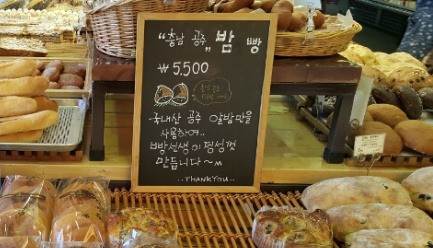 "충남 공주" 밤 빵
₩ 5,500
국내산 공주 알밤만을
사용하여..
빵선생이 정성껏
만듭니다~
..THANKYOU..